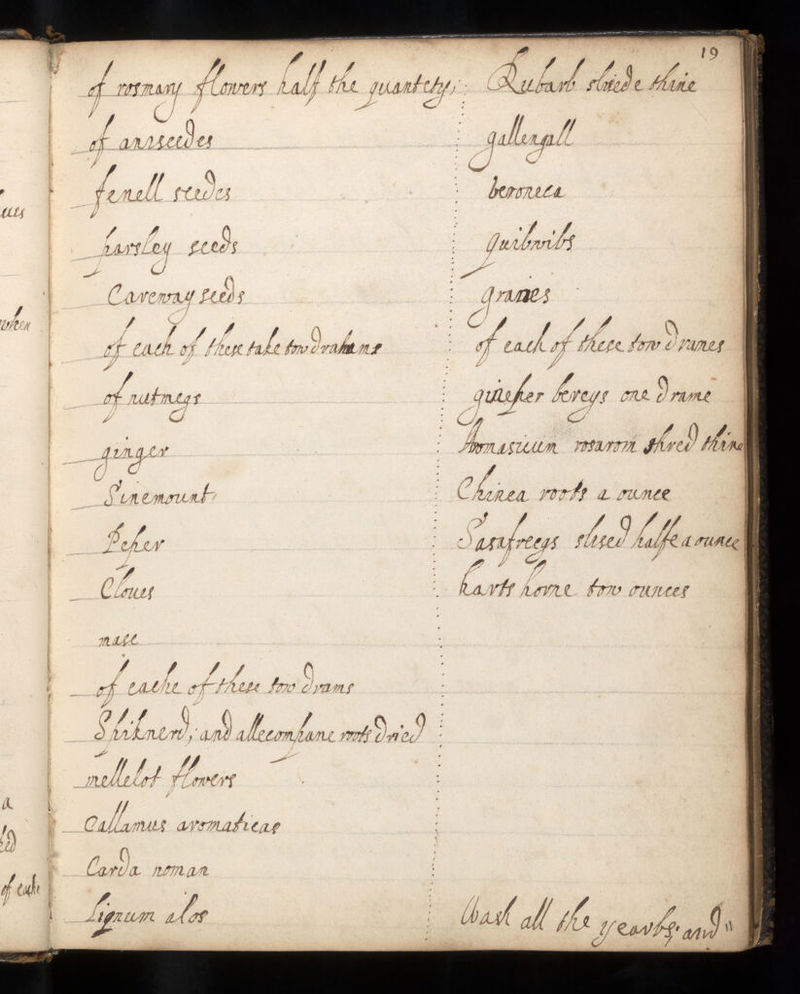 19
of rosmary flowers half the quantety;
of aniseedes
fenell seedes
parsley seeds
Careway seeds
of each of these take tow drahams
of nutmegs
ginger
Sinemount
Peper
Cloues
mase
of eache of these tow drams
Spiknerd, and allecompane roots dried
mellelot flowers
Callamus aromaticas
Carda moman
lignum alos
Rubarb sliede thine
gallengall
beroneca
Quibwibs
granes
of each of these tow dranes
gineper bereys one drame
Aromasicum rosarom shred thine
Chinea roots a ounce
Sasafreegs slised halfe a ounce
harts horne tow ounces
Wash all the yearbs; and
ues
when
a
of eache